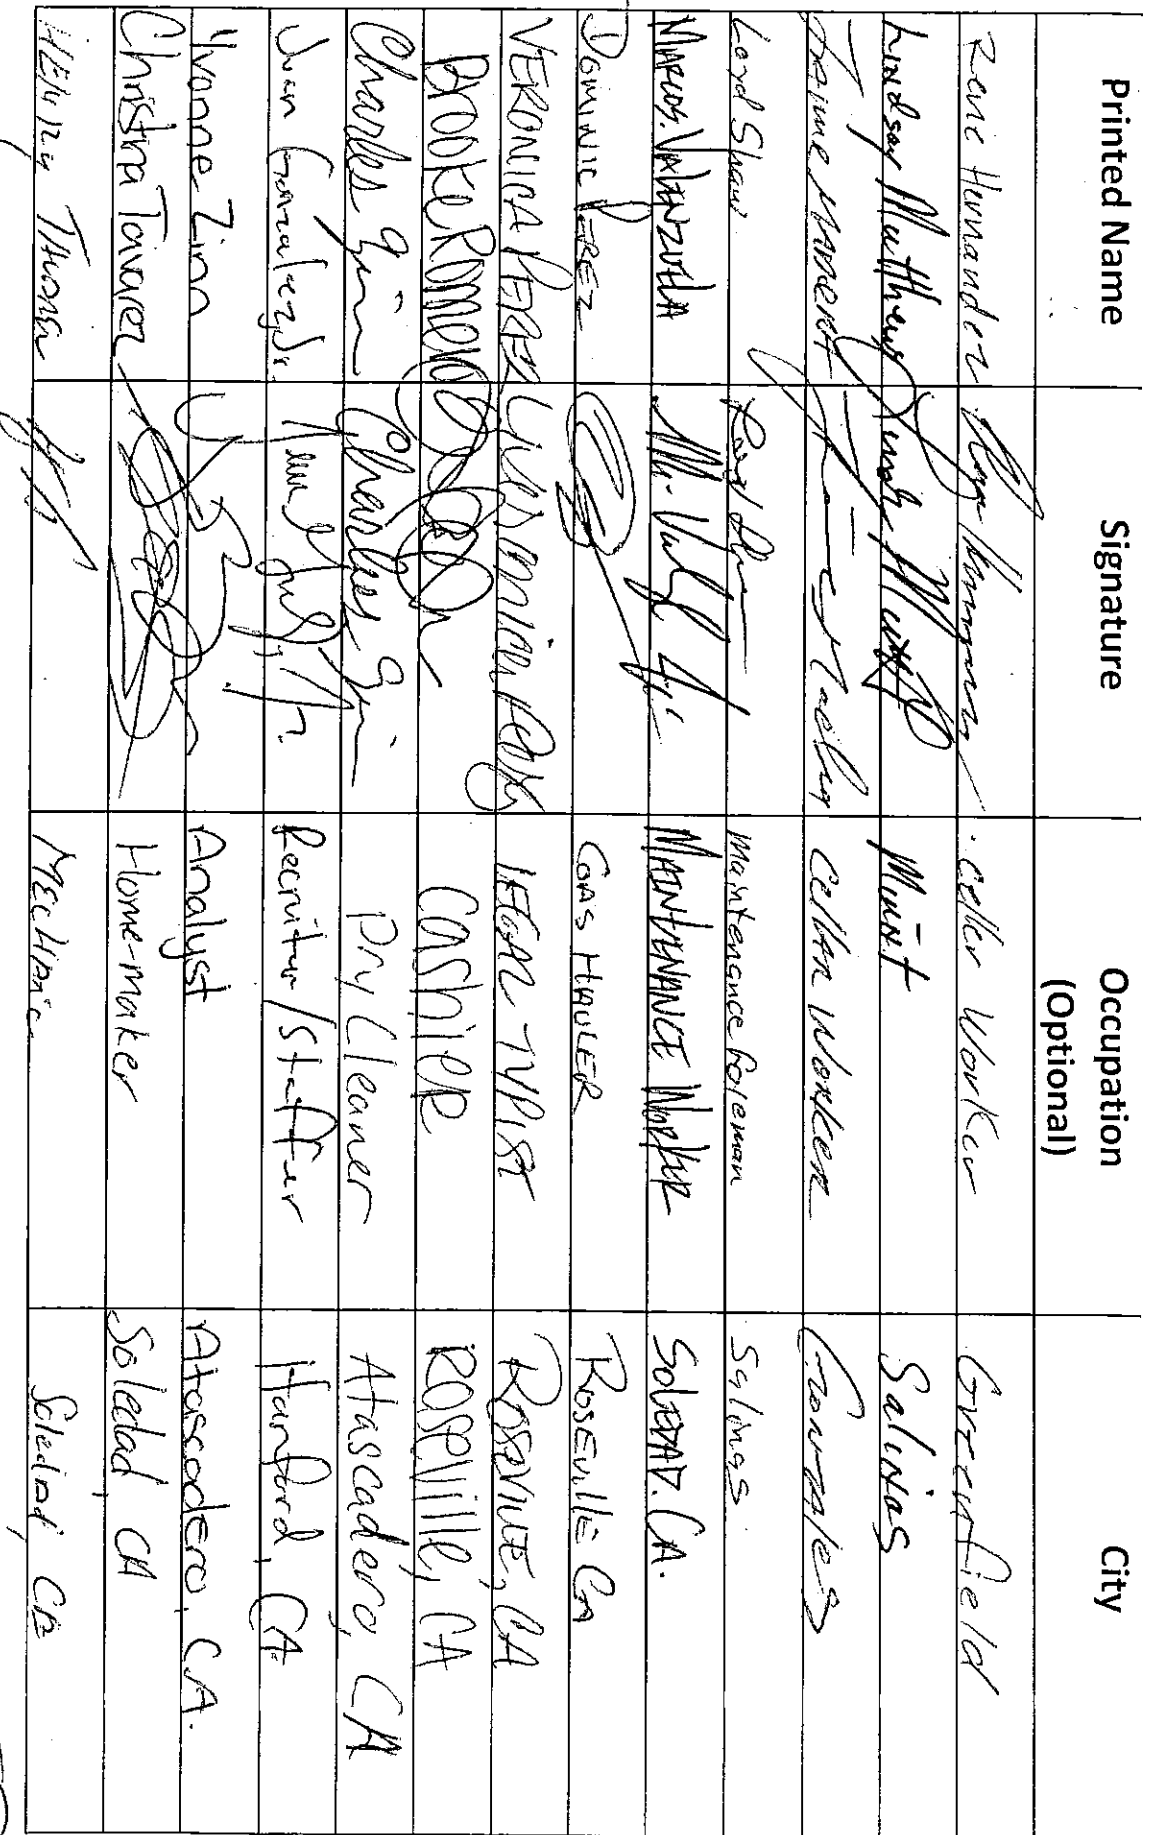 Printed Name Signature Occupation (Optional) City
Rene Hernandez Cellar Worker Greenfield
Lindsay Matthews Maint Salinas
Jaime Cellar Worker Gonzales
Loyd Shaw Maintenance foreman Salinas
MARCOS. VALENZUELA M. MAINTENANCE Worker SOLEDAD. CA.
DOMINIC PEREZ GAS HAULER ROSEVILLE CA
VERONICA PEREZ Veronica Perez LEGAL TYPIST ROSEVILLE, CA
BROOKE ROMERO CASHIER ROSEVILLE, CA
Charles Charles Dry Cleaner Atascadero, CA
Juan Gonzalez Jr. Recruiter/Staffer Hanford, CA
Yvonne Zinn Analyst Atascadero, CA.
Christina Tavarez Home-maker Soledad, CA
MECHANIC Soledad, CA